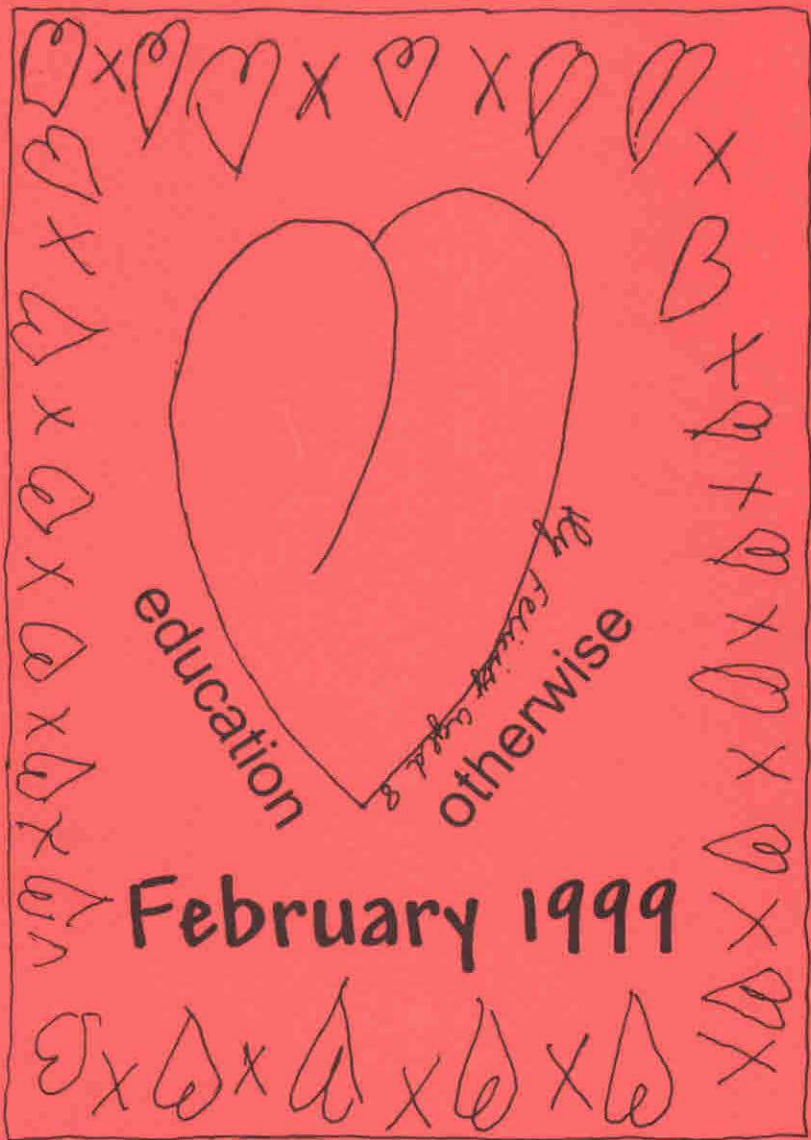 education
By Felicity aged 8
otherwise
February 1999